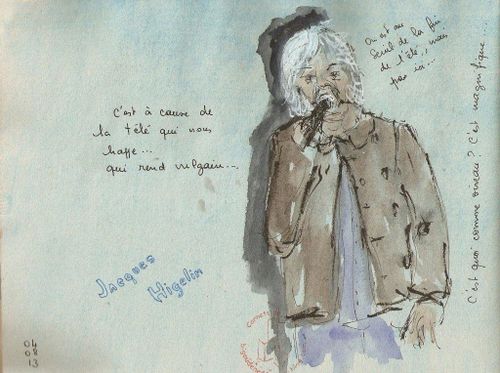 On est au
seuil de la fin
de l'été, mais
pas ici...
C'est à cause de
la télé qui nous
happe...
qui rend vulgain...
C'est quoi comme oiseau? C'est magnifique...
Jacques
Higelin
04
08
13